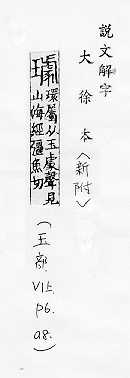 說文解字
大徐本〈新附〉
璩 環屬从玉豦聲見
山海經彊魚切
(玉部. VI上. p6. a8.)